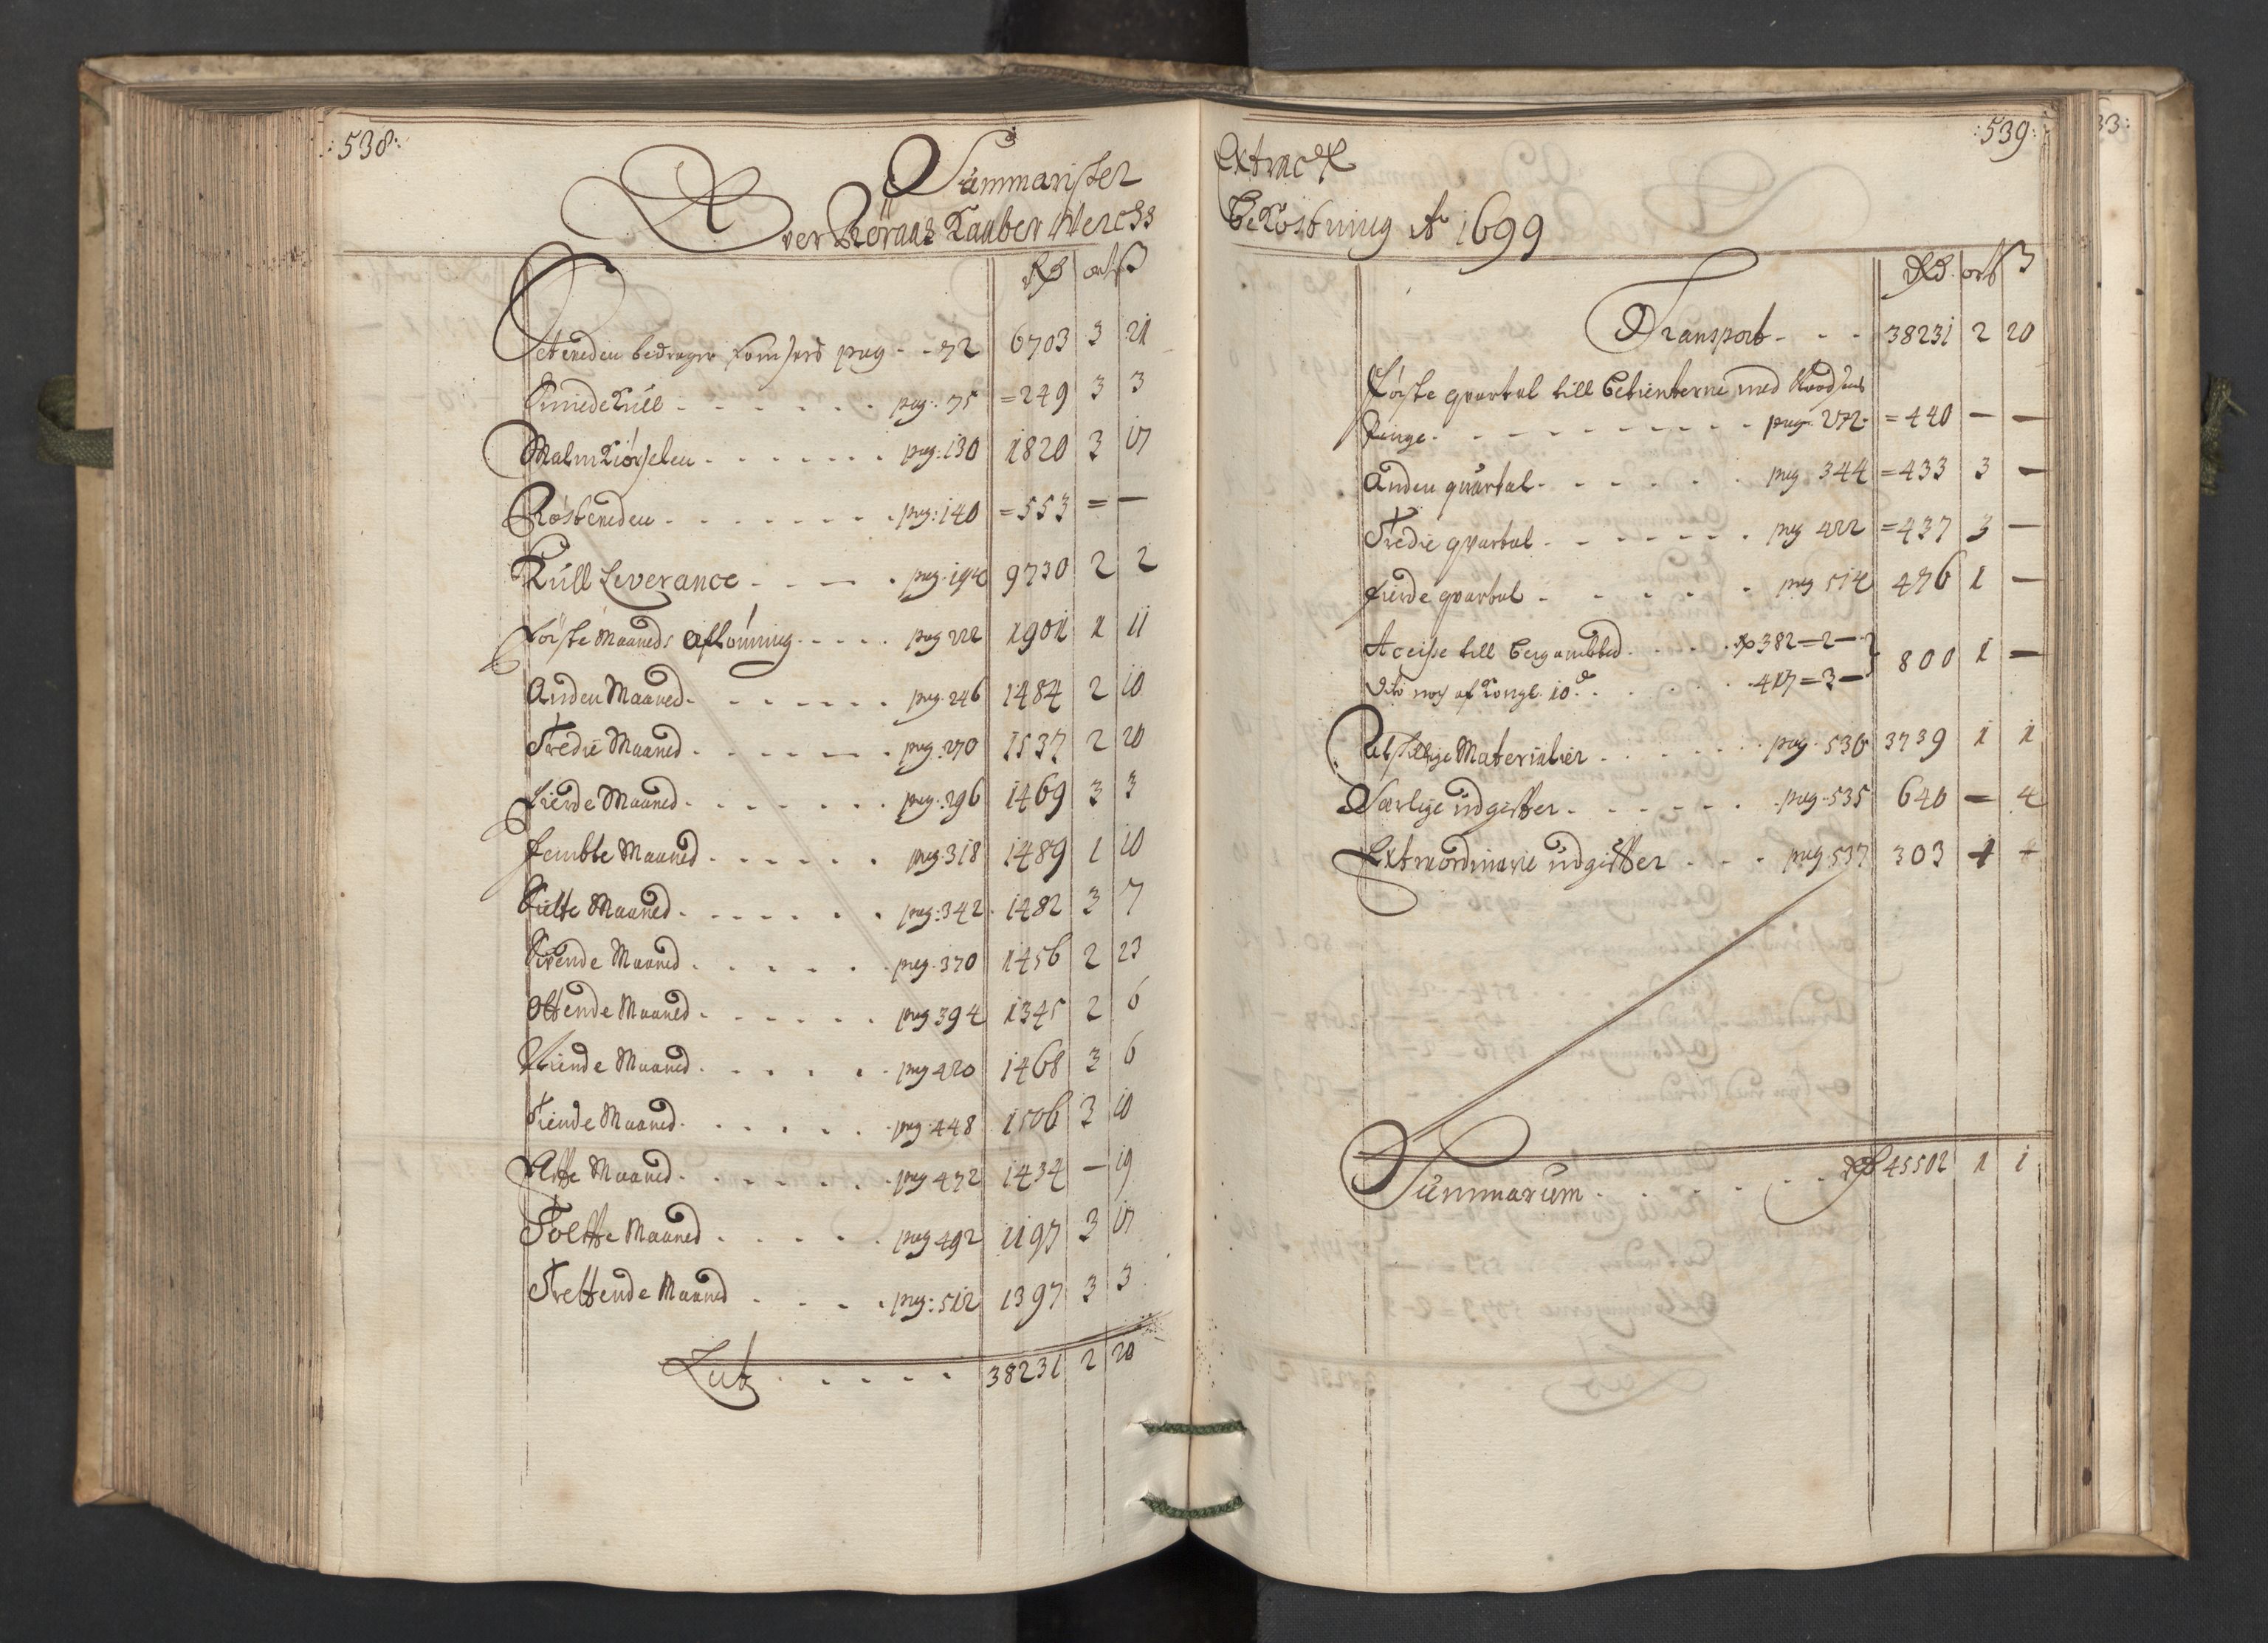 :538:
Summarister
Over Röraas Kaaber Werchs
Rd ort ß
Sætveden bedrager som fors pag - - 72 6703 3 21
Smiedekull - - - - - - pag: 75 =249 3 3
Malmkiörselen - - - - - - pag: 130 1820 3 17
Röstveden - - - - - - pag: 140 =553 = —
Kull Leverance - - - - pag. 194 9730 2 2
Förste Maaneds Aflönning - - - - pag 222 1901 1 11
Anden Maaned - - - - - - pag. 246 1484 2 10
Tredie Maaned - - - - - - pag. 270 1537 2 20
Fierde Maaned - - - - - - pag. 296 1469 3 3
Fembte Maaned - - - - - - pag. 318 1489 1 10
Siette Maaned - - - - - - pag: 342 1482 3 7
Sivende Maaned - - - - - - pag. 370 1456 2 23
Ottende Maaned - - - - - - pag 394 1345 2 6
Niende Maaned - - - - - pag 420 1468 3 6
Tiende Maaned - - - - - pag 448 1506 3 10
Elfte Maaned - - - - - - pag 472 1434 — 19
Tolffte Maaned - - - - - pag 492 1197 3 17
Trettende Maaned - - - - pag: 512 1397 3 3
Lat - - - - - 38231 2 20
:539:
Extract
Bekostning Ao 1699
Rd. ort ß
Transport - - - 38231 2 20
Förste qvartal till Betienterne med
Penge - - - - - - - - - pag. 272 =440 — —
Anden qvartal - - - - - - pag 344 =433 3 —
Tredie qvartal - - - - - - pag 422 =437 3 —
Fierde qvartal - - - - - - pag 514 476 1 —
Accise till Bergambted - - - Rd 382=2—
800 1 —
Dito noch af Kongl. 10d - - - 417=3—
Udskillige Materialier - - - - - - pag. 530 3739 1 1
Særlige udgiffter - - - - - - pag. 535 640 — 4
Extraordinarie udgiffter - - - pag 537 303 1 —
Summarum - - - - - - Rd 45502 1 1
33: